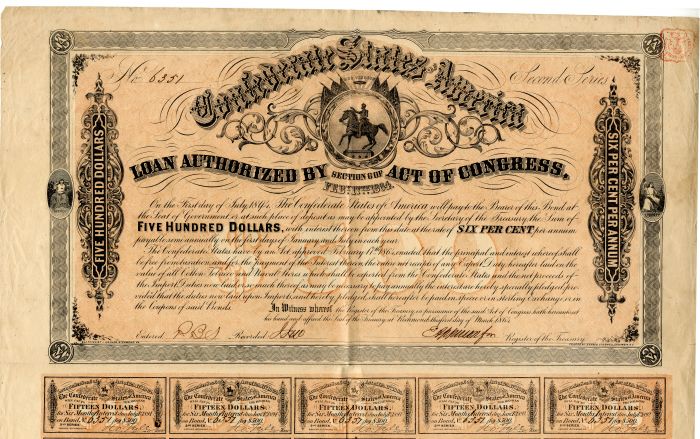 No. 6351
Second Series
Confederate States America
LOAN AUTHORIZED BY SECTION 6 OF ACT OF CONGRESS,
FEB: 17TH 1864.
FIVE HUNDRED DOLLARS
SIX PER CENT PER ANNUM
On the First day of July, 1894, The Confederate States of America will pay to the Bearer of this Bond, at
the Seat of Government or at such place of deposit as may be appointed by the Secretary of the Treasury, the Sum of
FIVE HUNDRED DOLLARS, with interest thereon from this date at the rate of SIX PER CENT per annum
payable semi annually on the first days of January and July in each year.
The Confederate States have by an Act approved February 17th 1864 enacted that the principal and interest whereof shall
be free from taxation, and for the payment of the Interest thereon the entire net receipts of any Export Duty hereafter laid on the
value of all Cotton, Tobacco and Naval Stores which shall be exported from the Confederate States and the net proceeds of
the Import Duties now laid, or so much thereof as may be necessary to pay annually the interest are hereby specially pledged; pro
vided that the duties now laid upon Imports and hereby pledged, shall hereafter be paid in specie or in sterling Exchange, or in
the Coupons of said Bonds.
In Witness whereof the Register of the Treasury, in pursuance of the said Act of Congress hath hereunto set
his hand and affixed the Seal of the Treasury at Richmond this first day of March 1864
Entered
Recorded
for
Register of the Treasury
The Confederate States of America
FIFTEEN DOLLARS,
for Six Months Interest due
on Bond, No. 6351 for $500
2ND SERIES
The Confederate States of America
FIFTEEN DOLLARS,
for Six Months Interest due
on Bond, No. 6351 for $500
2ND SERIES
The Confederate States of America
FIFTEEN DOLLARS,
for Six Months Interest due
on Bond, No. 6351 for $500
2ND SERIES
The Confederate States of America
FIFTEEN DOLLARS,
for Six Months Interest due
on Bond, No. 6351 for $500
2ND SERIES
The Confederate States of America
FIFTEEN DOLLARS,
for Six Months Interest due
on Bond, No. 6351 for $500
2ND SERIES